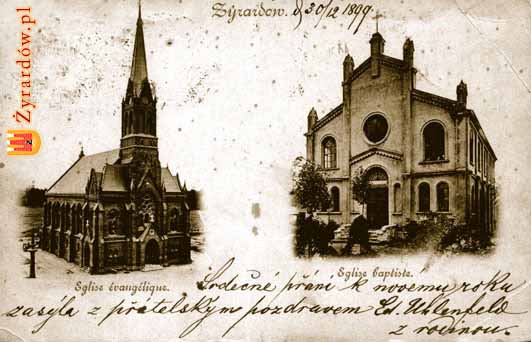 Żyrardów. d 30/12 1899
Żyrardów.pl
Eglise évangélique.
Eglise baptiste.
Srdečné přání k novému roku
zasýla z přátelským pozdravem Ed. Uhlenfeld
z rodinou.